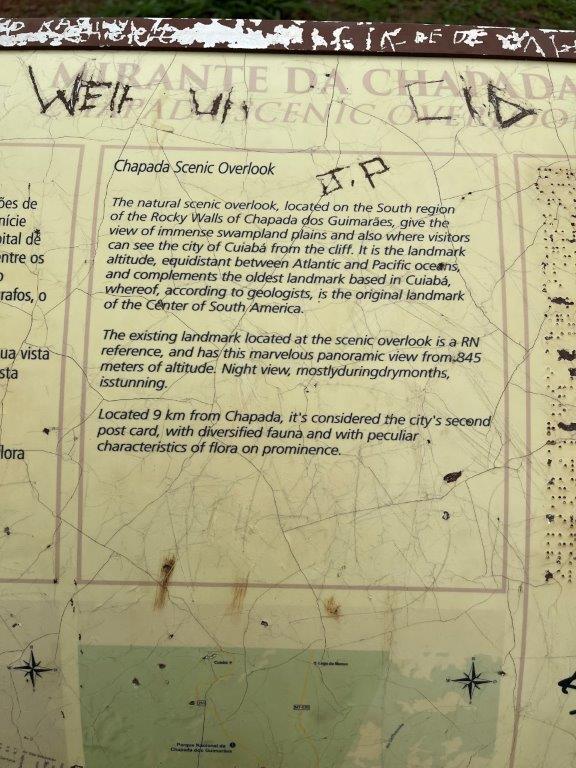 MIRANTE DA CHAPADA
CHAPADA SCENIC OVERLOO
J.P
Chapada Scenic Overlook
The natural scenic overlook, located on the South region
of the Rocky Walls of Chapada dos Guimarães, give the
view of immense swampland plains and also where visitors
can see the city of Cuiabá from the cliff. It is the landmark
altitude, equidistant between Atlantic and Pacific oceans,
and complements the oldest landmark based in Cuiabá,
whereof, according to geologists, is the original landmark
of the Center of South America.
The existing landmark located at the scenic overlook is a RN
reference, and has this marvelous panoramic view from 845
meters of altitude. Night view, mostlyduringdrymonths,
isstunning.
Located 9 km from Chapada, it's considered the city's second
post card, with diversified fauna and with peculiar
characteristics of flora on prominence.
ões de
nície
pital de
entre os
o
rafos, o
ua vista
sta
lora
Cuiabá
Lago do Manso
Parque Nacional de
Chapada dos Guimarães